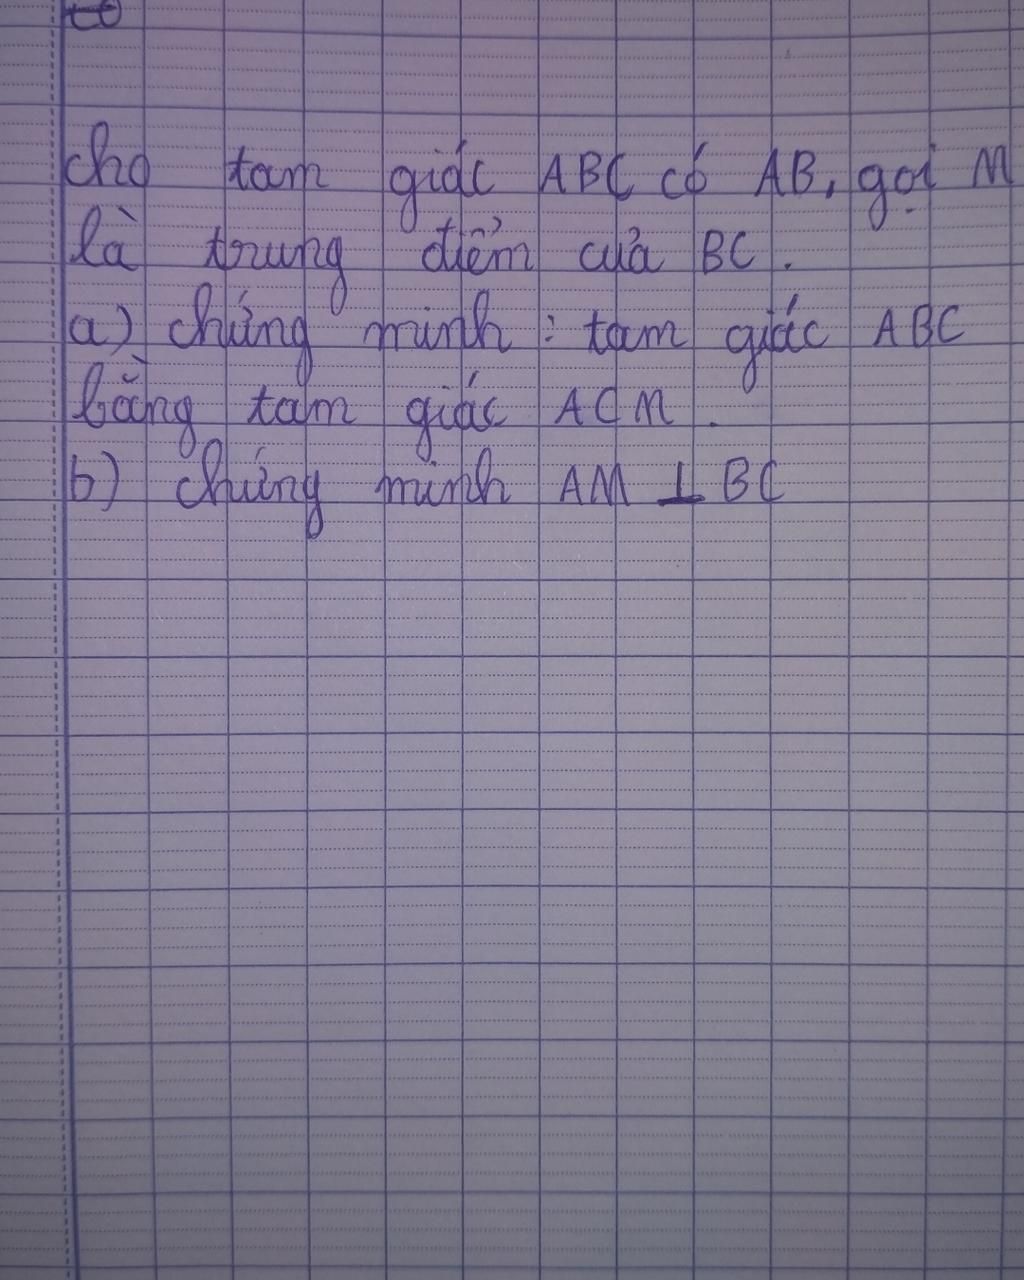 cho tam giác ABC có AB, gọi M
là trung điểm của BC.
a) chứng minh : tam giác ABC
bằng tam giác ACM.
b) chứng minh AM ⊥ BC